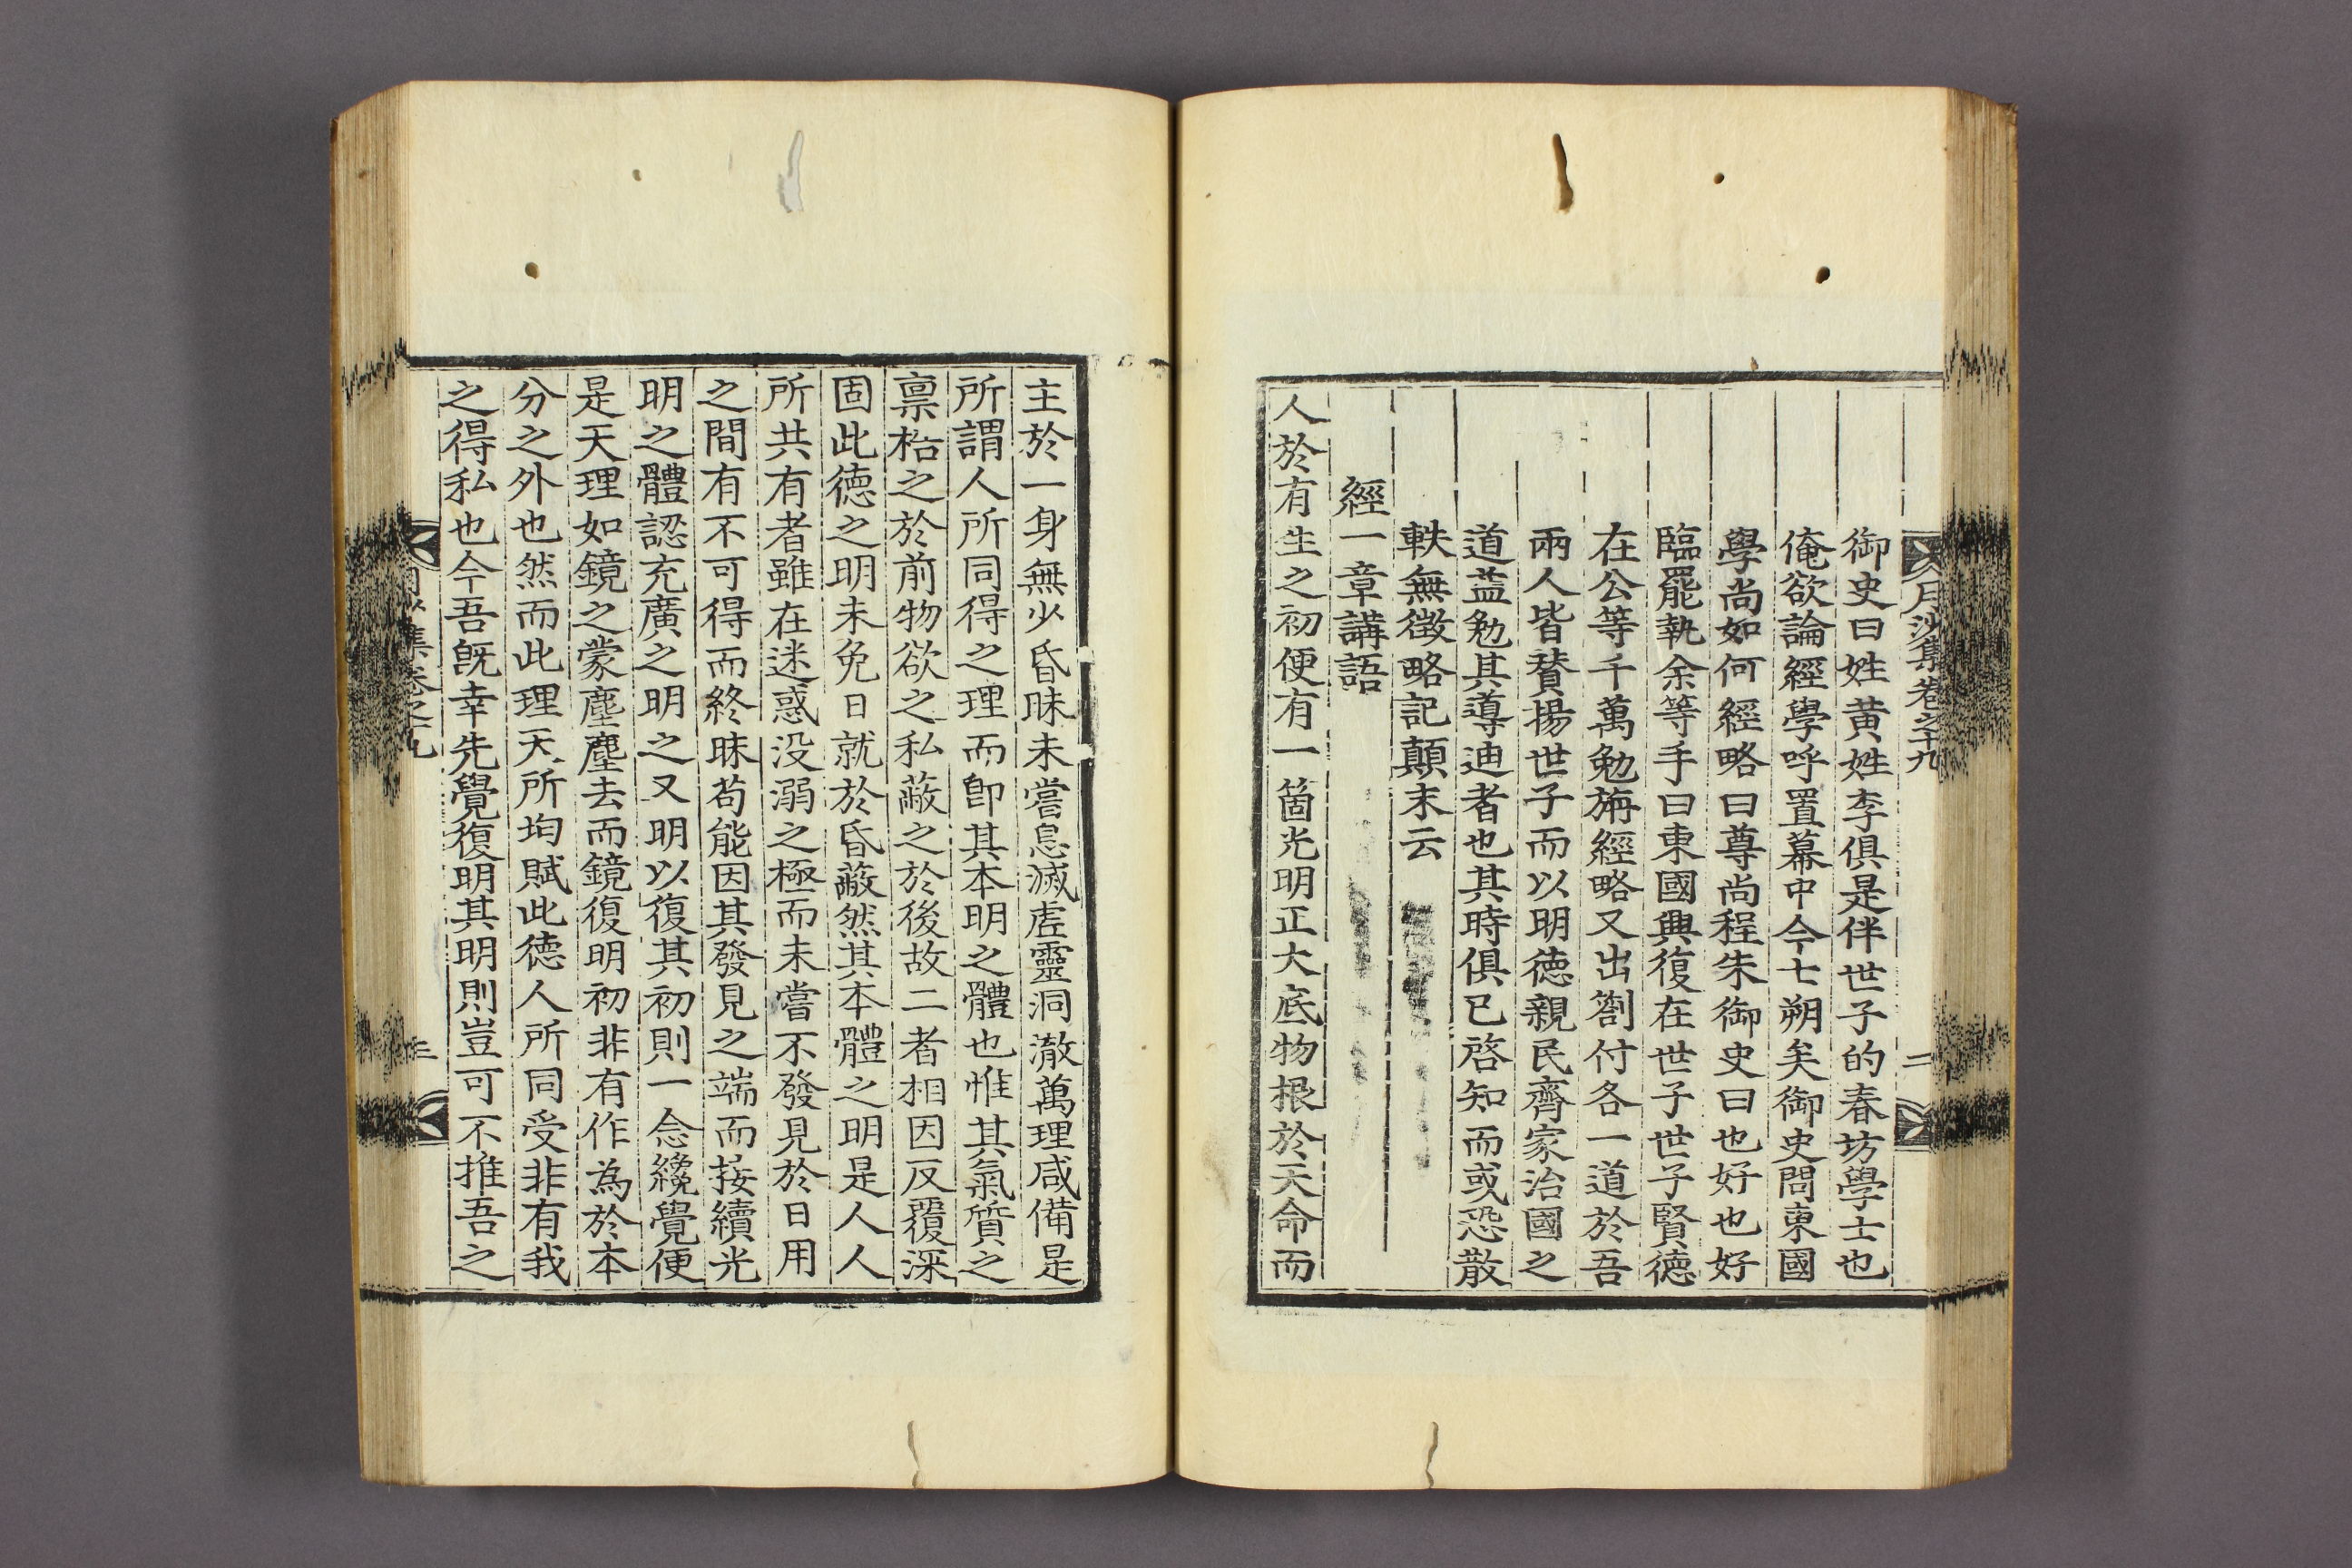 月沙集卷之十九
二
御史曰姓黃姓李俱是伴世子的春坊學士也
俺欲論經學呼置幕中今七朔矣御史問東國
學尚如何經略曰尊尚程朱御史曰也好也好
臨罷執余等手曰東國興復在世子世子賢德
在公等千萬勉旃經略又出劄付各一道於吾
兩人皆賛揚世子而以明德親民齊家治國之
道盖勉其導迪者也其時俱已啓知而或恐散
軼無徵略記顛末云
經一章講語
人於有生之初便有一箇光明正大底物根於天命而
主於一身無少昏昧未嘗息滅虛靈洞澈萬理咸備是
所謂人所同得之理而卽其本明之體也惟其氣質之
禀梏之於前物欲之私蔽之於後故二者相因反覆深
固此德之明未免日就於昏蔽然其本體之明是人人
所共有者雖在迷惑没溺之極而未嘗不發見於日用
之間有不可得而終昧苟能因其發見之端而接續光
明之體認充廣之明之又明以復其初則一念纔覺便
是天理如鏡之蒙塵塵去而鏡復明初非有作為於本
分之外也然而此理天所均賦此德人所同受非有我
之得私也今吾旣幸先覺復明其明則豈可不推吾之
月沙集卷之十九
三